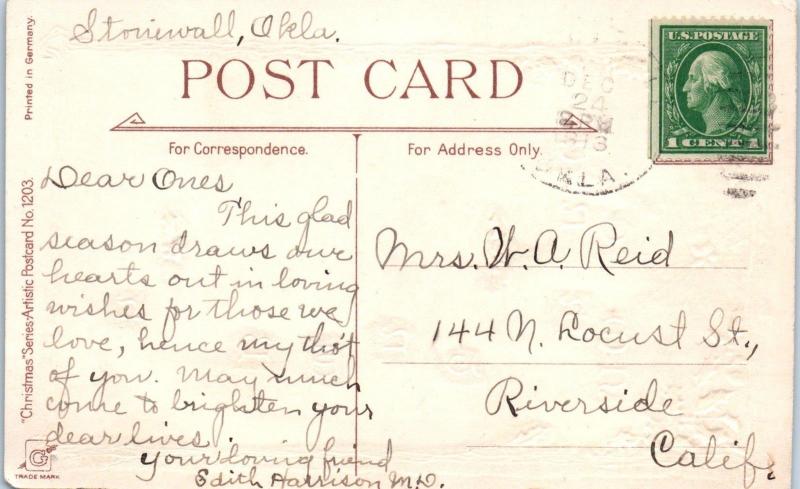 Stonewall, Okla.
POST CARD
For Correspondence.
For Address Only.
U.S. POSTAGE
1 CENT 1
DEC
24
OKLA.
Dear Ones
This glad
season draws our
hearts out in loving
wishes for those we
love, hence my tho't
of you. May much
come to brighten your
dear lives.
Your loving friend
Edith Harrison M.D.
Mrs. W. A. Reid
144 N. Locust St.,
Riverside
Calif.
Printed in Germany.
"Christmas" Series-Artistic Postcard No. 1203.
G
TRADE MARK